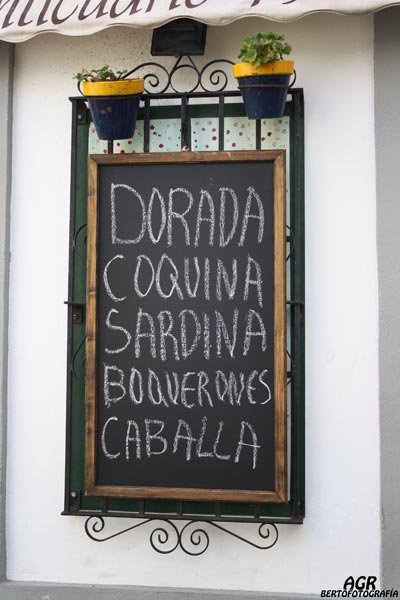 DORADA
COQUINA
SARDINA
BOQUERONES
CABALLA
AGR
BERTOFOTOGRAFÍA